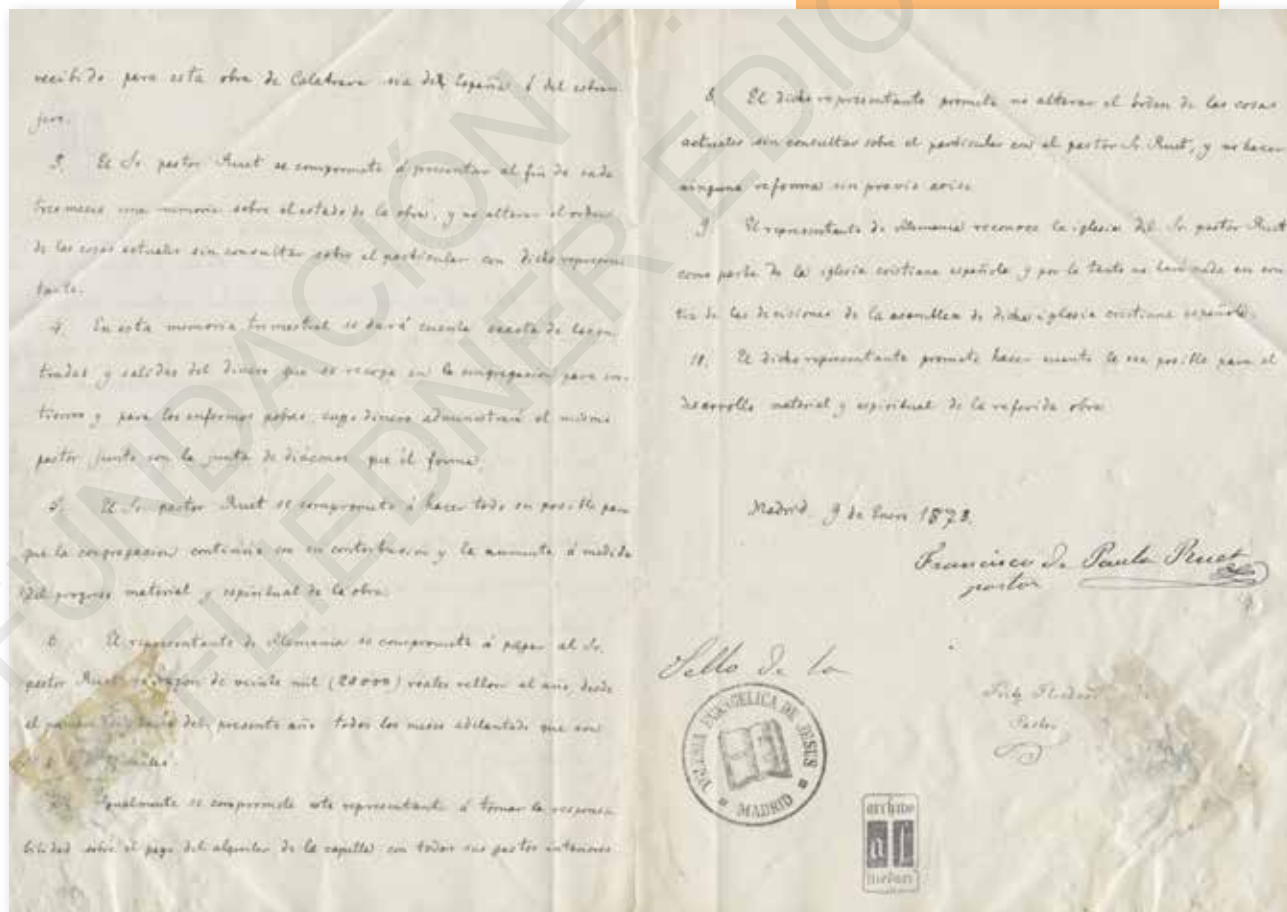 recibido para esta obra de Calatrava sea del España ó del estran
jero.
3. El Sr. pastor Ruet se compromete á presentar al fin de cada
tres meses una memoria sobre el estado de la obra, y no alterar el orden
de las cosas actuales sin consultar sobre el particular con dicho represen
tante.
4. En esta memoria trimestral se dará cuenta exacta de las en
tradas y salidas del dinero que se recoja en la congregacion para en
tierros y para los enfermos pobres, cuyo dinero administrará el mismo
pastor junto con la junta de diáconos que él forma.
5. El Sr. pastor Ruet se compromete á hacer todo su posible para
que la congregacion continúe con su contribucion y la aumente á medida
del progreso material y espiritual de la obra.
6. El representante de Alemania se compromete á pagar al Sr.
pastor Ruet razon de veinte mil (20000) reales vellon al año, desde
el del presente año todos los meses adelantado que son
reales.
Igualmente se compromete este representante á tomar la responsa
bilidad sobre el pago del alquiler de la capilla con todos sus gastos interiores
8. El dicho representante promete no alterar el orden de las cosas
actuales sin consultar sobre el particular con el pastor Sr. Ruet, y no hacer
ninguna reforma sin previo aviso.
9. El representante de Alemania reconoce la iglesia del Sr. pastor Ruet
como parte de la iglesia cristiana española y por lo tanto no hará nada en con
tra de las decisiones de la asamblea de dicha iglesia cristiana española.
10. El dicho representante promete hacer cuanto le sea posible para el
desarrollo material y espiritual de la referida obra.
Madrid 9 de Enero 1873.
Francisco de Paula Ruet
pastor
Sello de la
IGLESIA EVANGELICA DE JESUS
MADRID
Fritz Fliedner
Pastor
archivo
af
fliedner
FUNDACIÓN F.
FLIEDNER EDICIO